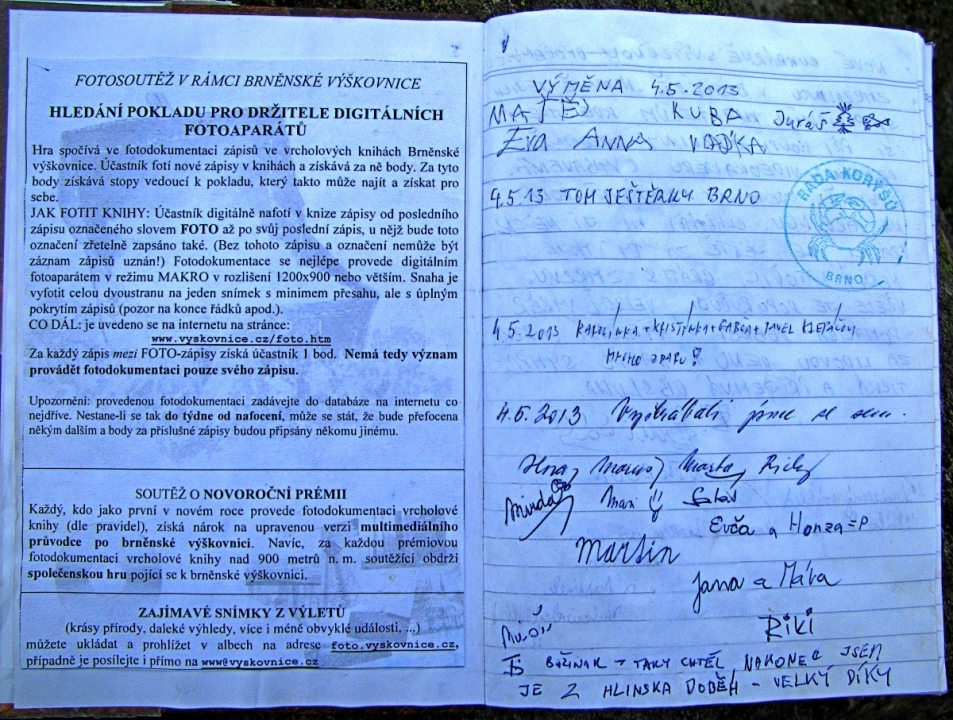 FOTOSOUTĚŽ V RÁMCI BRNĚNSKÉ VÝŠKOVNICE
HLEDÁNÍ POKLADU PRO DRŽITELE DIGITÁLNÍCH
FOTOAPARÁTŮ
Hra spočívá ve fotodokumentaci zápisů ve vrcholových knihách Brněnské
výškovnice. Účastník fotí nové zápisy v knihách a získává za ně body. Za tyto
body získává stopy vedoucí k pokladu, který takto může najít a získat pro
sebe.
JAK FOTIT KNIHY: Účastník digitálně nafotí v knize zápisy od posledního
zápisu označeného slovem FOTO až po svůj poslední zápis, u nějž bude toto
označení zřetelně zapsáno také. (Bez tohoto zápisu a označení nemůže být
záznam zápisů uznán!) Fotodokumentace se nejlépe provede digitálním
fotoaparátem v režimu MAKRO v rozlišení 1200x900 nebo větším. Snaha je
vyfotit celou dvoustranu na jeden snímek s minimem přesahu, ale s úplným
pokrytím zápisů (pozor na konce řádků apod.).
CO DÁL: je uvedeno se na internetu na stránce:
www.vyskovnice.cz/foto.htm
Za každý zápis mezi FOTO-zápisy získá účastník 1 bod. Nemá tedy význam
provádět fotodokumentaci pouze svého zápisu.
Upozornění: provedenou fotodokumentaci zadávejte do databáze na internetu co
nejdříve. Nestane-li se tak do týdne od nafocení, může se stát, že bude přefocena
někým dalším a body za příslušné zápisy budou připsány někomu jinému.
SOUTĚŽ O NOVOROČNÍ PRÉMII
Každý, kdo jako první v novém roce provede fotodokumentaci vrcholové
knihy (dle pravidel), získá nárok na upravenou verzi multimediálního
průvodce po brněnské výškovnici. Navíc, za každou prémiovou
fotodokumentaci vrcholové knihy nad 900 metrů n. m. soutěžící obdrží
společenskou hru pojící se k brněnské výškovnici.
ZAJÍMAVÉ SNÍMKY Z VÝLETŮ
(krásy přírody, daleké výhledy, více i méně obvyklé události, ...)
můžete ukládat a prohlížet v albech na adrese foto.vyskovnice.cz,
případně je posílejte i přímo na www@vyskovnice.cz
VÝMĚNA 4.5.2013
MATĚJ KUBA Juráš
Eva Anna
4.5.13 TOM JEŠTĚRKY BRNO
RADA KORÝŠŮ
BRNO
4.5.2013 KAROLÍNKA+KRISTÝNKA+GÁBČA+PAVEL
MNOHO ZDARU!
4.5.2013 Vyškrábali jsme se sem.
Marta Ricky
Minda
Evča a Honza =P
Martin
Jana a Mára
Riki
BUŽINAK - TAKY CHTĚL NAKONEC JSEM
JE Z HLINSKA DOBĚH - VELKÝ DÍKY